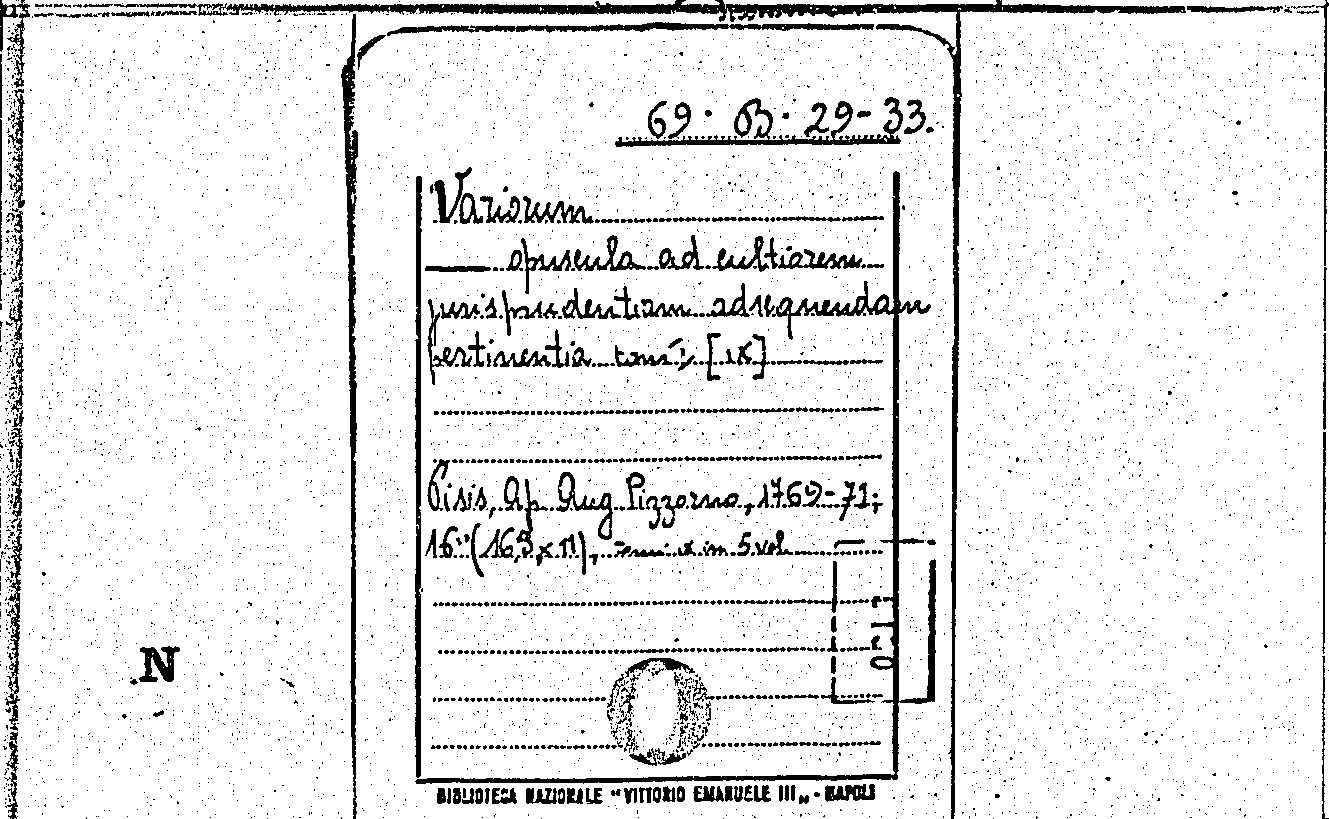 69. B. 29-33.
Variorum
—— opuscula ad cultiorem
jurisprudentiam adsequendam
pertinentia tomi [IX]
Pisis, Ap. Aug. Pizzorno, 1769-71;
16° (16,5 x 11), tomi IX in 5 vol.
N
BIBLIOTECA NAZIONALE "VITTORIO EMANUELE III" - NAPOLI